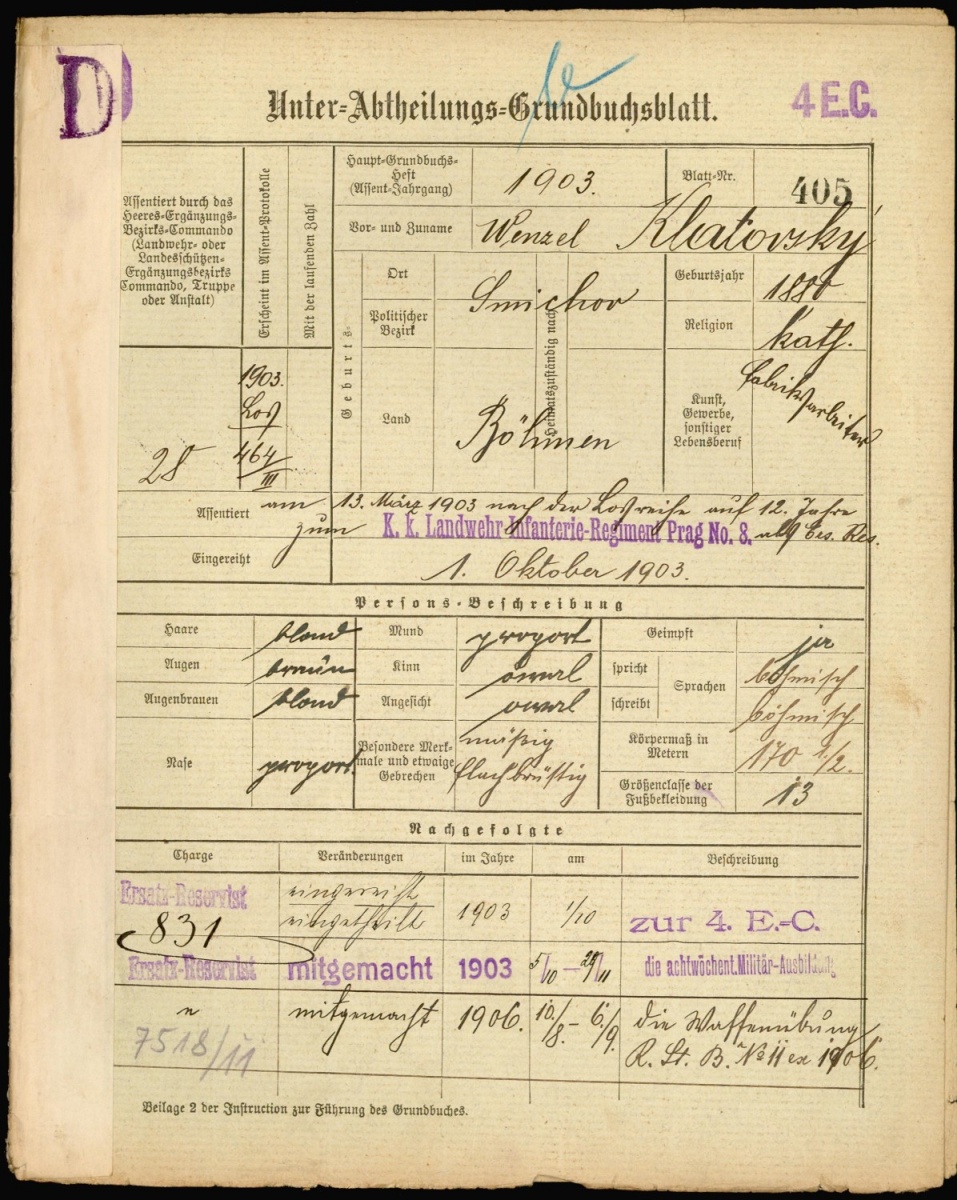 D
Unter-Abtheilungs-Grundbuchsblatt.
4 E.C.
Assentiert durch das
Heeres-Ergänzungs-
Bezirks-Commando
(Landwehr- oder
Landesschützen-
Ergänzungsbezirks
Commando, Truppe
oder Anstalt)
Erscheint im Assent-Protokolle
Mit der laufenden Zahl
28
1903.
Los
464/III
Haupt-Grundbuchs-
Heft
(Assent-Jahrgang)
1903.
Blatt-Nr.
405
Vor- und Zuname
Wenzel Klatovský
Geburts-
Ort
Politischer
Bezirk
Smichov
Land
Böhmen
Heimatszuständig nach
Geburtsjahr
1880
Religion
kath.
Kunst,
Gewerbe,
sonstiger
Lebensberuf
Fabriksarbeiter
Assentiert
am 13. März 1903 nach der Losreihe auf 12. Jahre
zum K. k. Landwehr-Infanterie-Regiment Prag No. 8. als Ers. Res.
Eingereiht
1. Oktober 1903.
Persons-Beschreibung
Haare
blond
Mund
proport
Geimpft
ja
Augen
braun
Kinn
oval
spricht
Sprachen
böhmisch
Augenbrauen
blond
Angesicht
oval
schreibt
böhmisch
Nase
proport.
Besondere Merk-
male und etwaige
Gebrechen
mäßig
flachbrüstig
Körpermaß in
Metern
170 1/2.
Größenclasse der
Fußbekleidung
13
Nachgefolgte
Charge
Veränderungen
im Jahre
am
Beschreibung
Ersatz-Reservist
831
eingereiht
eingetheilt
1903
1/10
zur 4. E.-C.
Ersatz-Reservist
mitgemacht
1903
5/10 – 29/11
die achtwöchent. Militär-Ausbildung
"
mitgemacht
1906.
10./8. – 6./9.
die Waffenübung
R. St. B. No 11 ex 1906.
7518/11
Beilage 2 der Instruction zur Führung des Grundbuches.